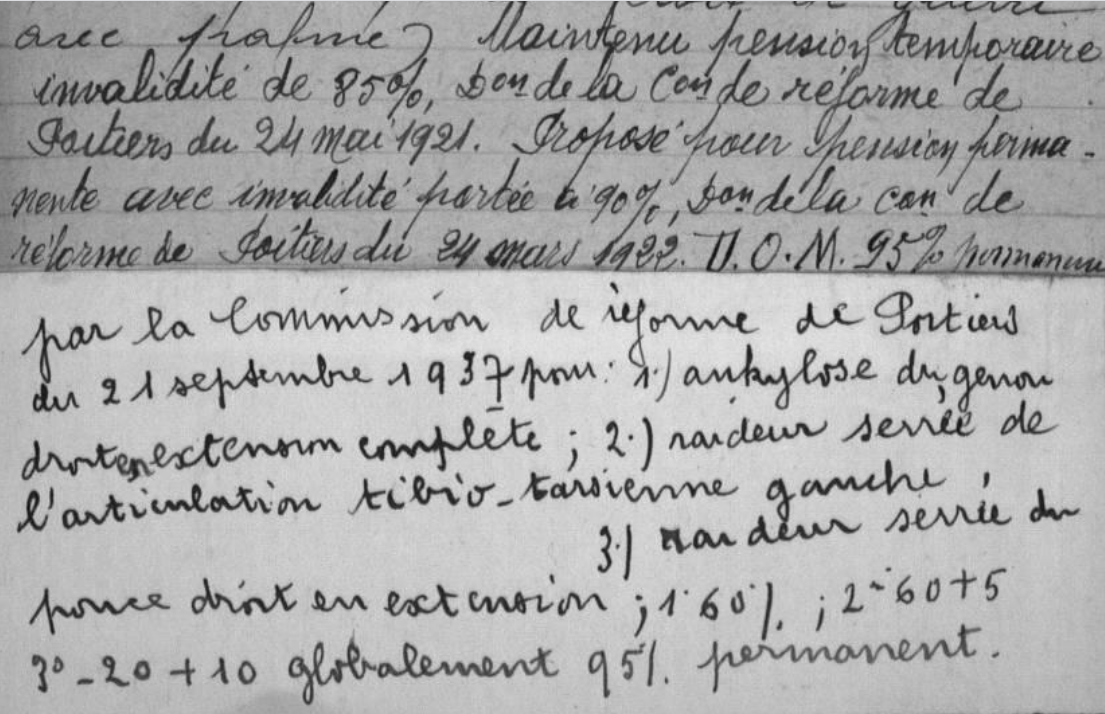 de guerre
avec palme) Maintenu pension temporaire
invalidité de 85%, Don de la Con de réforme de
Poitiers du 24 mai 1921. Proposé pour pension perma-
nente avec invalidité portée à 90%, Don de la Con de
réforme de Poitiers du 24 mars 1922. D.O.M. 95% permanent
par la Commission de réforme de Poitiers
du 21 septembre 1937 pour: 1.) ankylose du genou
droit en extension complète ; 2.) raideur serrée de
l'articulation tibio-tarsienne gauche,
3.) raideur serrée du
pouce droit en extension ; 1° 60% ; 2° 60+5
3° - 20 + 10 globalement 95%. permanent.